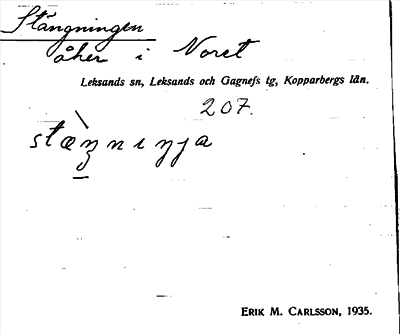 Stängningen
åker i Noret
Leksands sn, Leksands och Gagnefs tg, Kopparbergs län.
207.
stæ̀ŋnıŋa
ERIK M. CARLSSON, 1935.